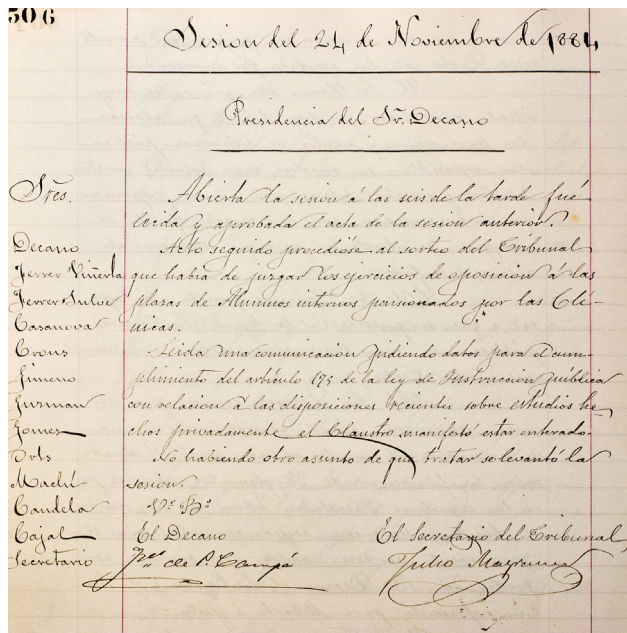 506
Sesion del 24 de Noviembre de 1884
Presidencia del Sr. Decano
Sres.
Decano
Ferrer Viñerta
Ferrer Julve
Casanova
Crous
Gimeno
Guzman
Gomez
Orts
Machí
Candela
Cajal
Secretario
Abierta la sesion á las seis de la tarde fué
leida y aprobada el acta de la sesion anterior.
Acto seguido procedióse al sorteo del Tribunal
que habia de juzgar los ejercicios de oposicion á las
plazas de Alumnos internos pensionados por las Clí-
nicas.
Leida una comunicacion pidiendo datos para el cum-
plimiento del artículo 175 de la ley de Instruccion pública
con relacion á las disposiciones recientes sobre estudios he-
chos privadamente el Claustro manifestó estar enterado.
No habiendo otro asunto de que tratar se levantó la
sesion.
Vº. Bº.
El Decano
de P. Campá
El Secretario del Tribunal
Julio Magraner